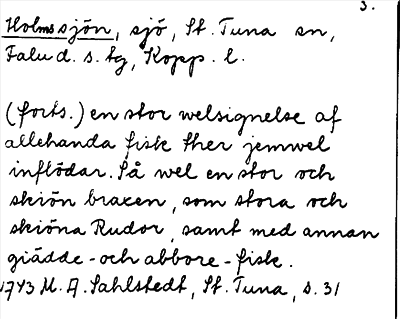 3.
Holmssjön, sjö, St. Tuna sn,
Falu d. s. tg, Kopp. l.
(forts.) en stor welsignelse af
allehanda fisk ther jemwel
inflödar. Så wel en stor och
skiön braxen, som stora och
skiöna Rudor, samt med annan
giädde- och abbore-fisk.
1743 M. A. Sahlstedt, St. Tuna, s. 31